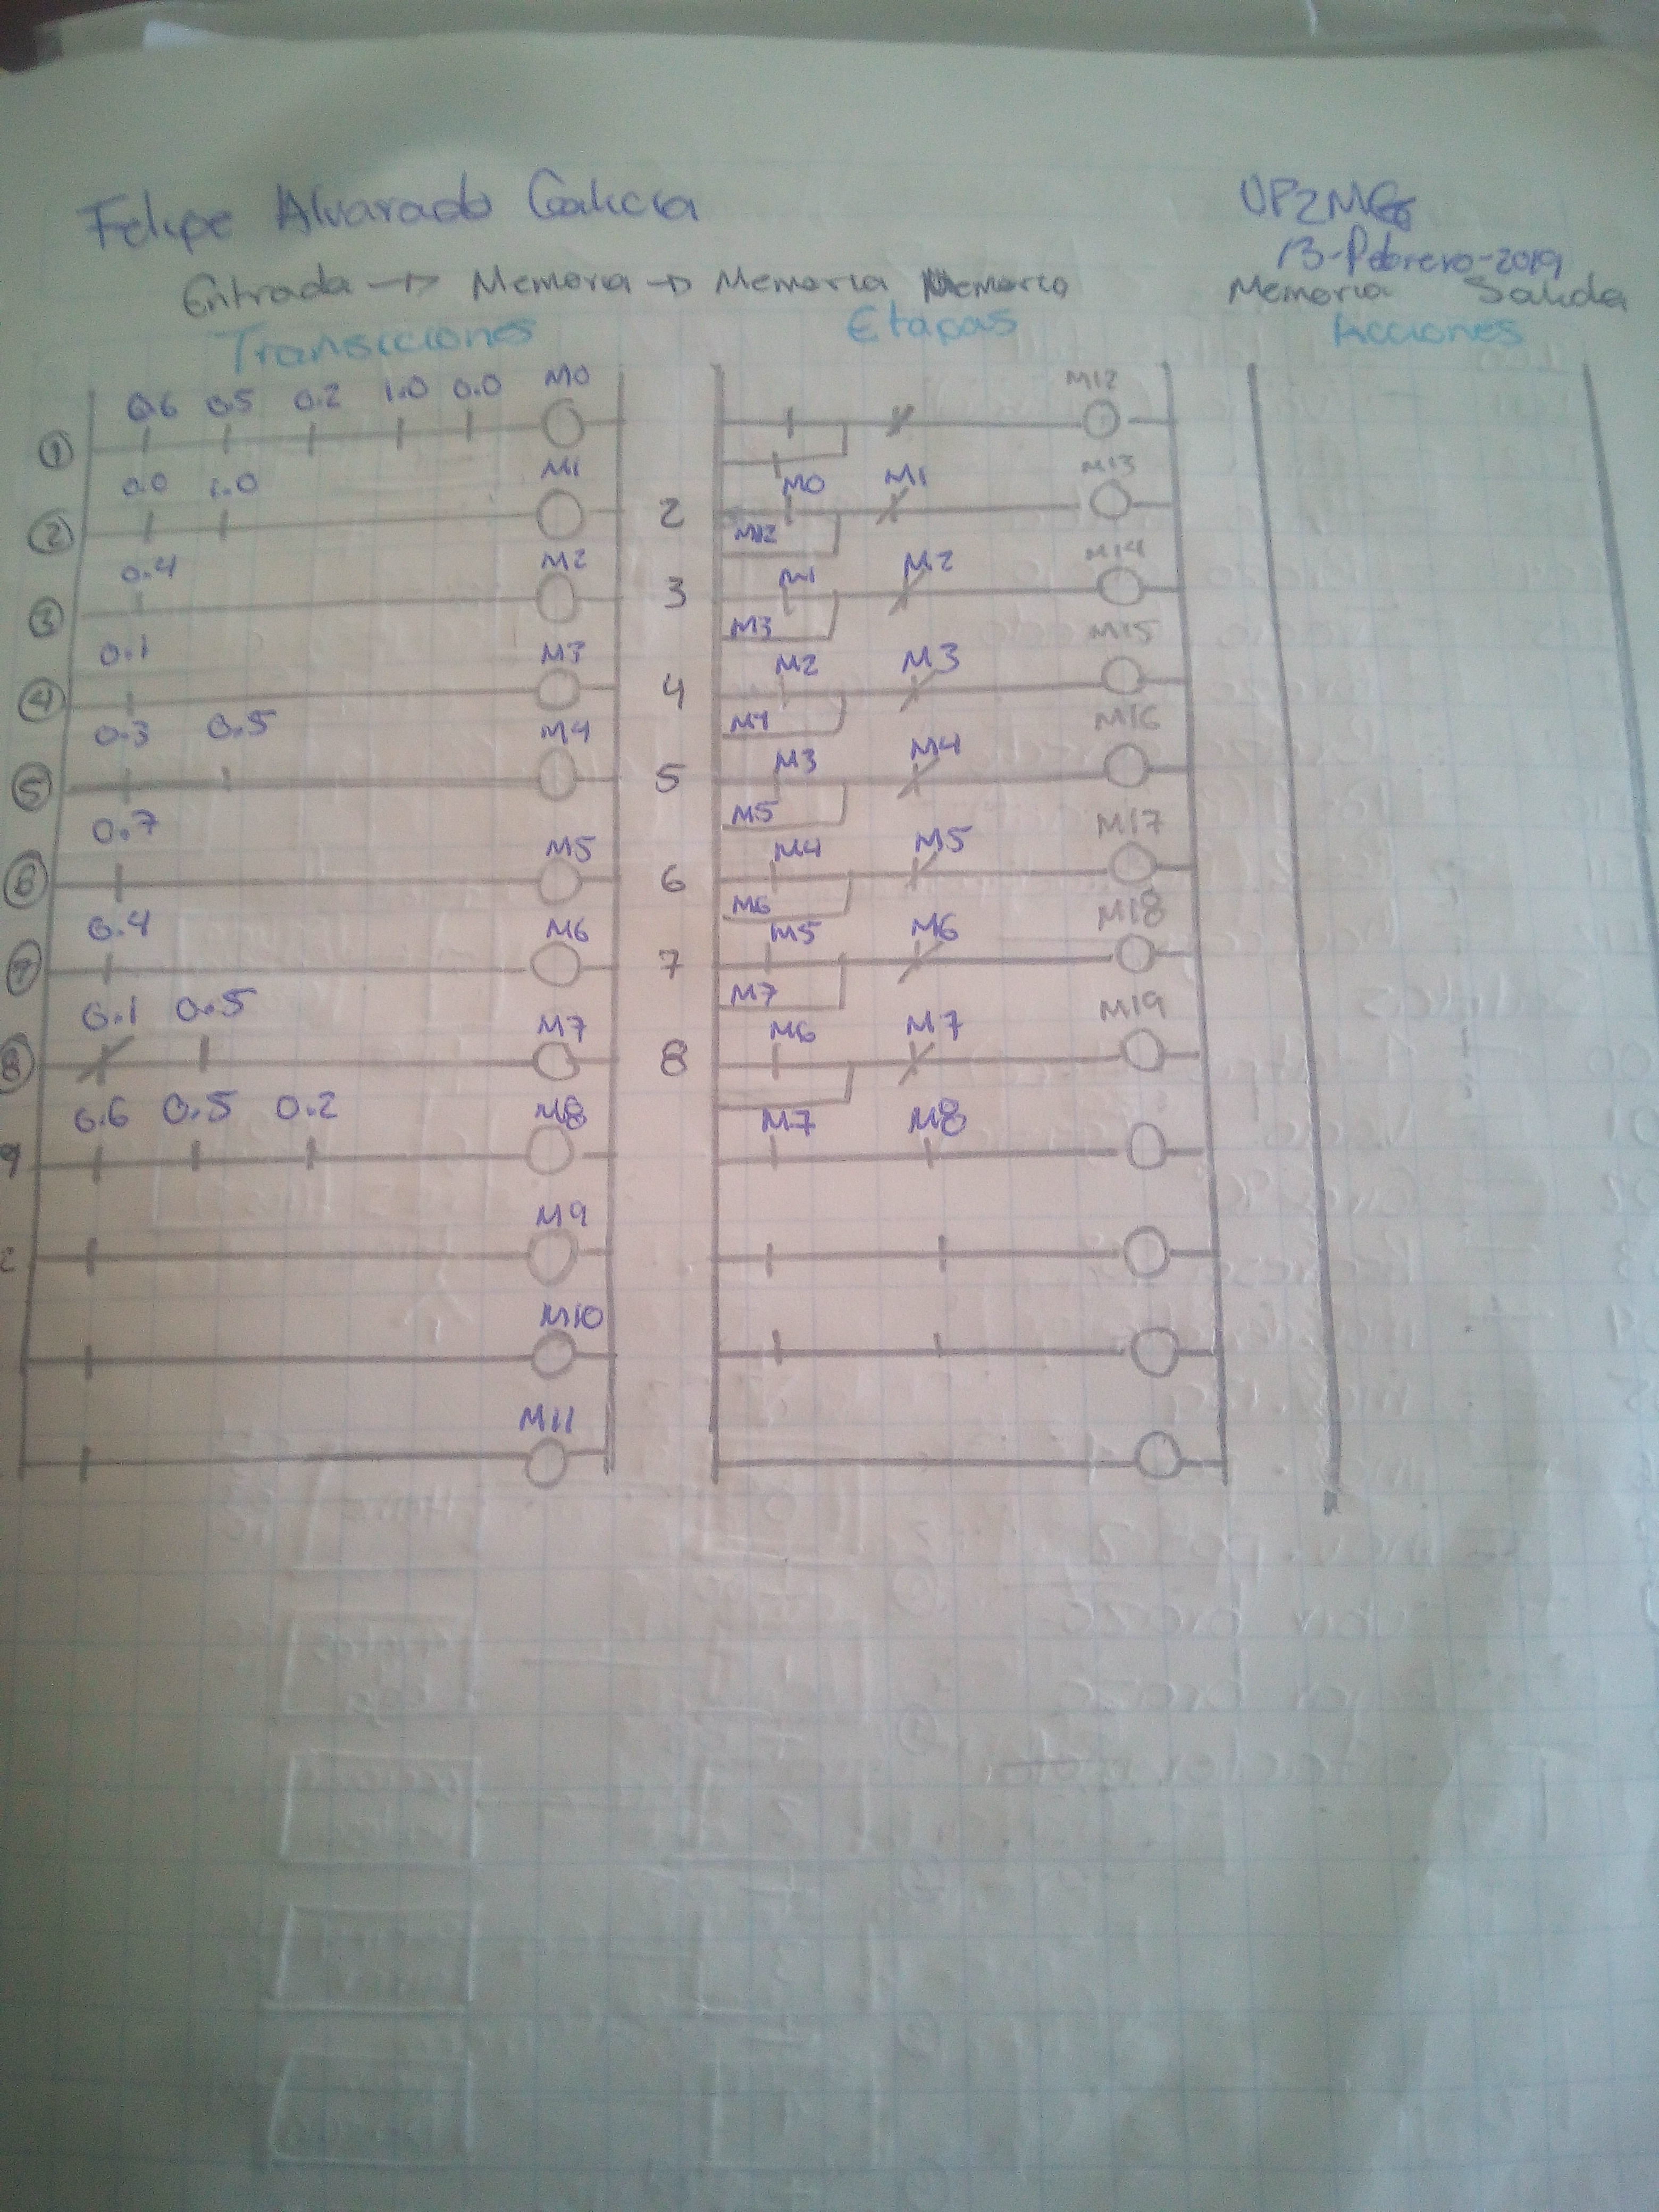 Felipe Alvarado Galicia
UP2MG6
13-Febrero-2019
Entrada → Memoria → Memoria Memoria
Memoria Salida
Transiciones
Etapas
Acciones
1 0.6 0.5 0.2 1.0 0.0 M0
2 0.0 1.0 M1
3 0.4 M2
4 0.1 M3
5 0.3 0.5 M4
6 0.7 M5
7 0.4 M6
8 0.1 0.5 M7
9 0.6 0.5 0.2 M8
M9
M10
M11
M12
2 M0 M1 M13
M12
3 M1 M2 M14
M3
4 M2 M3 M15
M4
5 M3 M4 M16
M5
6 M4 M5 M17
M6
7 M5 M6 M18
M7
8 M6 M7 M19
M7 M8